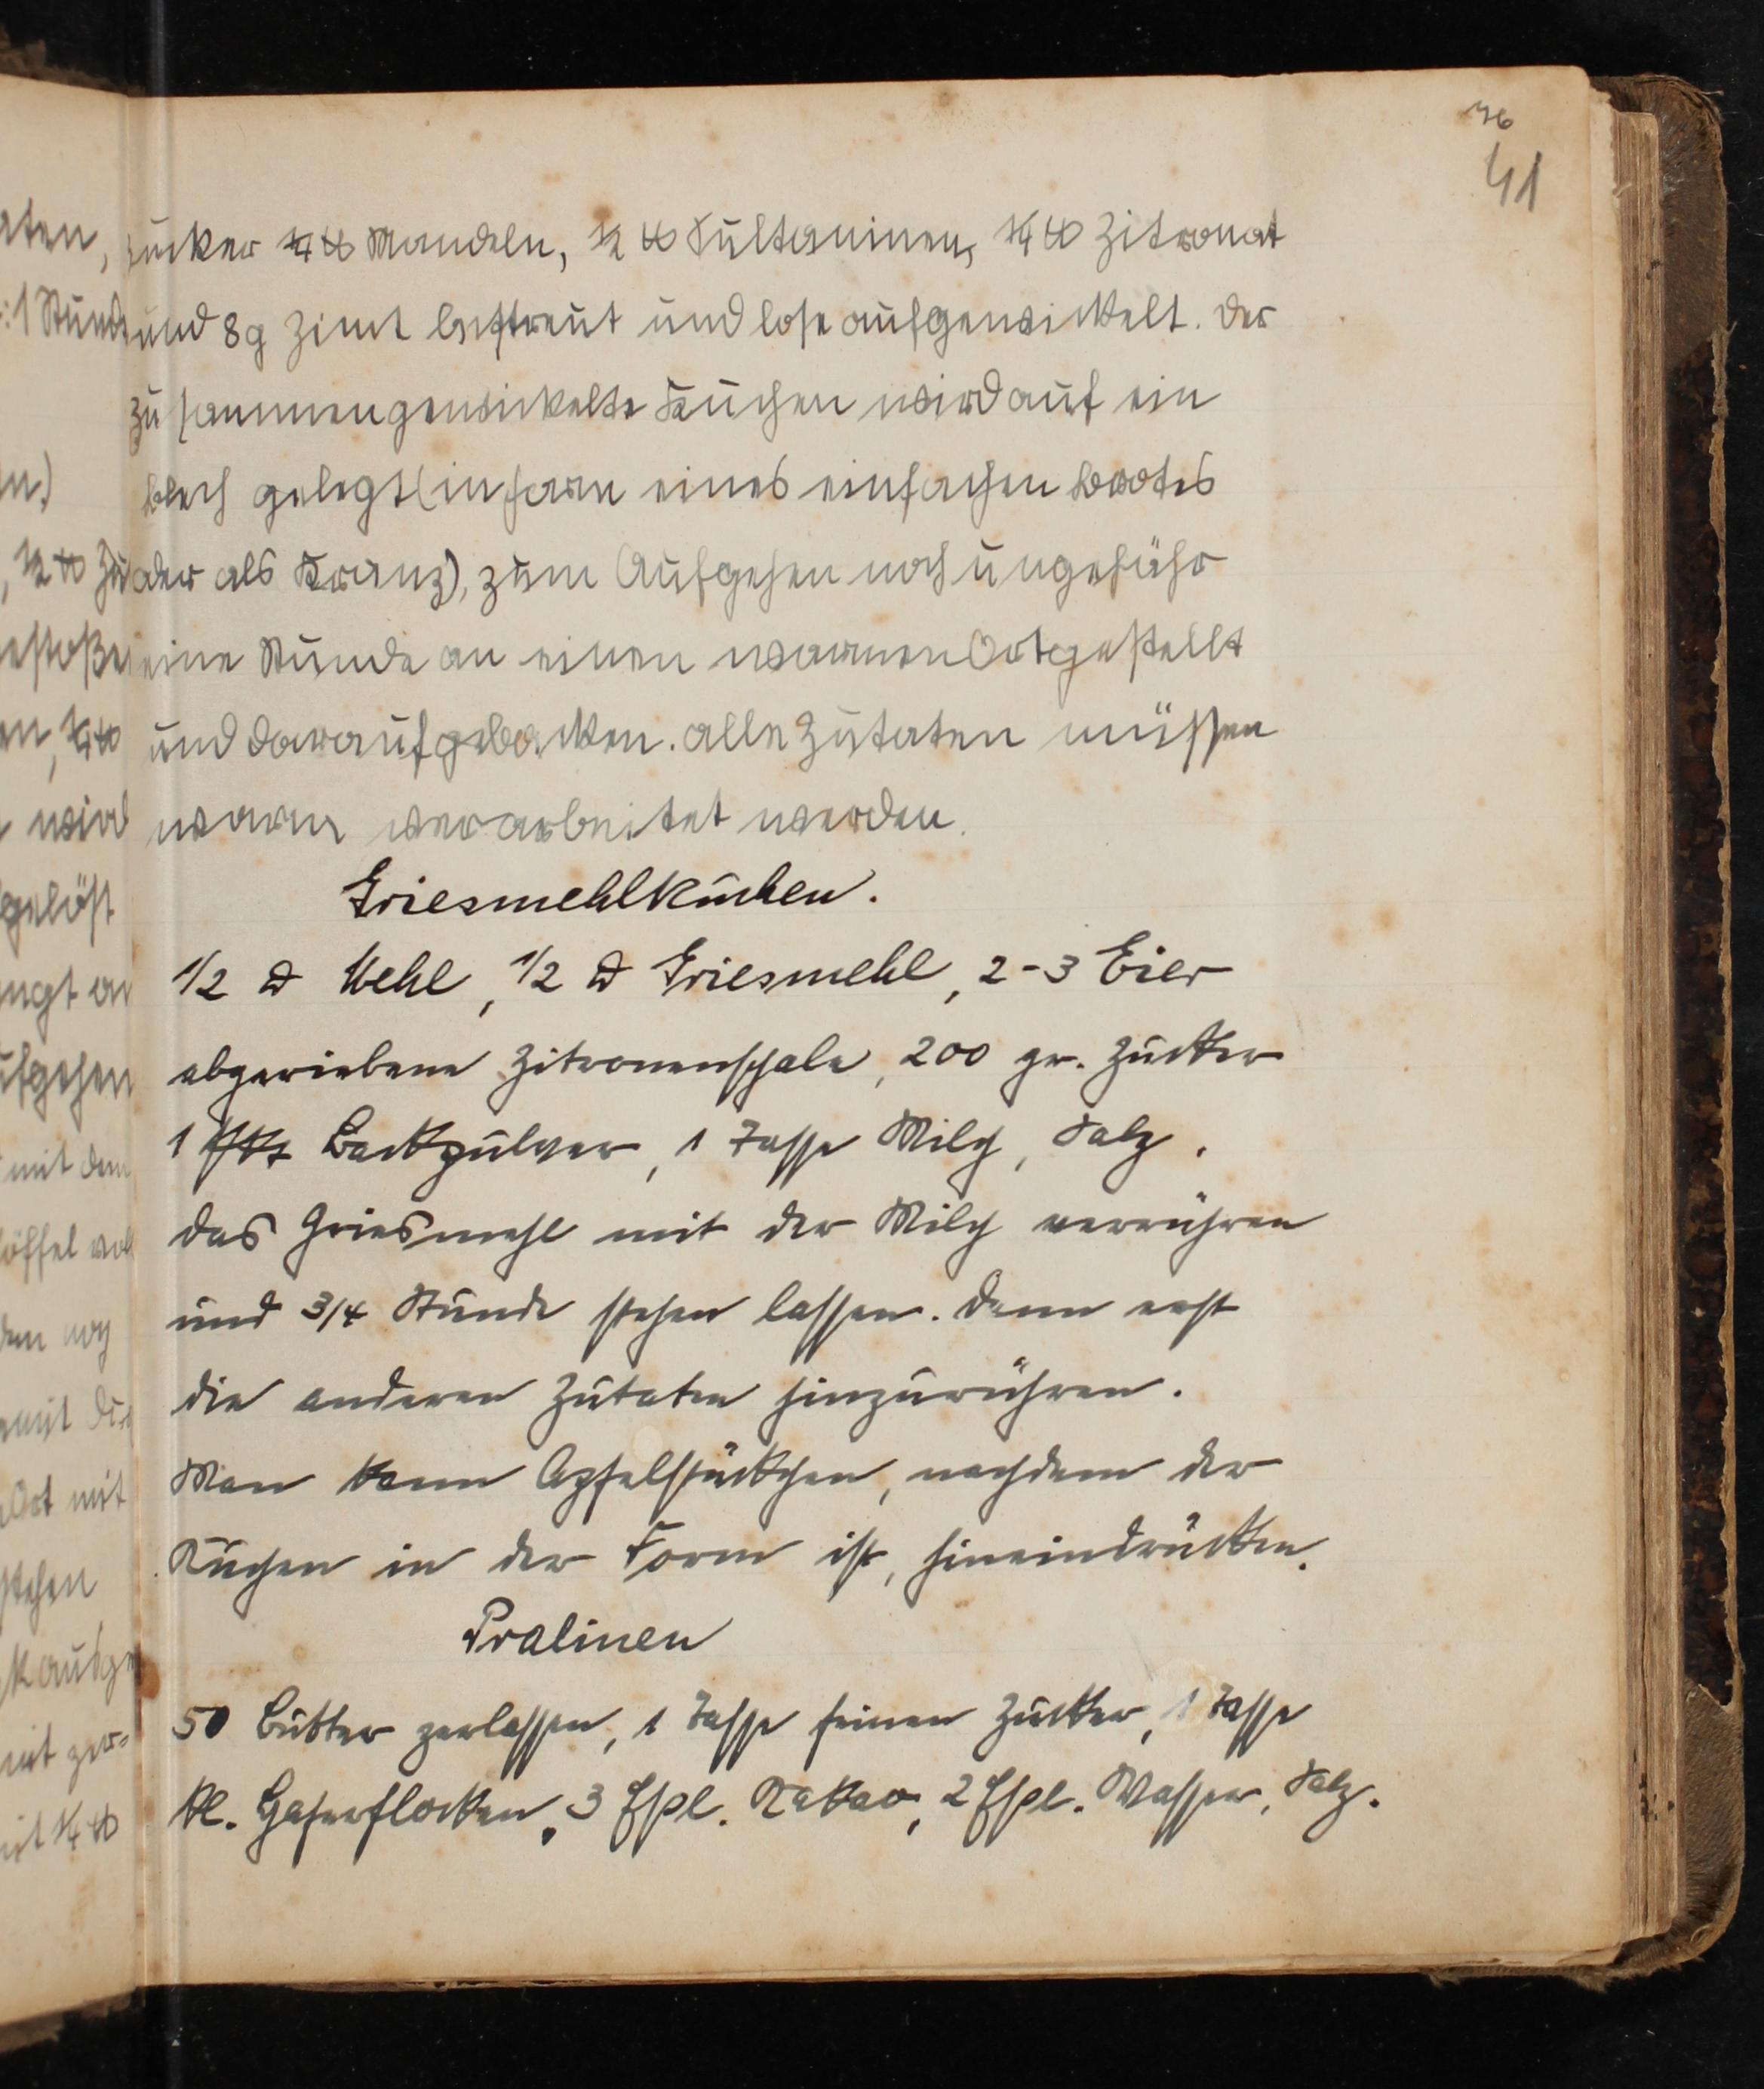 36
41
zucker ¼ ℔ Mandeln, ½ ℔ Sultaninen, ¼ ℔ Zitronat
und 8g Zimt bestreut und lose aufgewickelt. Der
zusammengewickelte Kuchen wird auf ein
Blech gelegt (in Form eines einfachen Brotes
oder als Kranz), zum Aufgehen noch ungefähr
eine Stunde an einen warmen Ort gestellt
und darauf gebacken. Alle Zutaten müssen
warm verarbeitet werden.
Griesmehlkuchen.
1/2 ℔ Mehl, 1/2 ℔ Griesmehl, 2-3 Eier
abgeriebene Zitronenschale, 200 gr. Zucker
1 Pkt Backpulver, 1 Tasse Milch, Salz.
Das Griesmehl mit der Milch verrühren
und 3/4 Stunde stehen lassen. Dann erst
die anderen Zutaten hinzurühren.
Man kann Apfelstückchen, nachdem der
Kuchen in der Form ist, hineindrücken.
Pralinen
50 Butter zerlassen, 1 Tasse feinen Zucker, 1 Tasse
kl. Haferflocken, 3 Eßl. Kakao, 2 Eßl. Wasser, Salz.